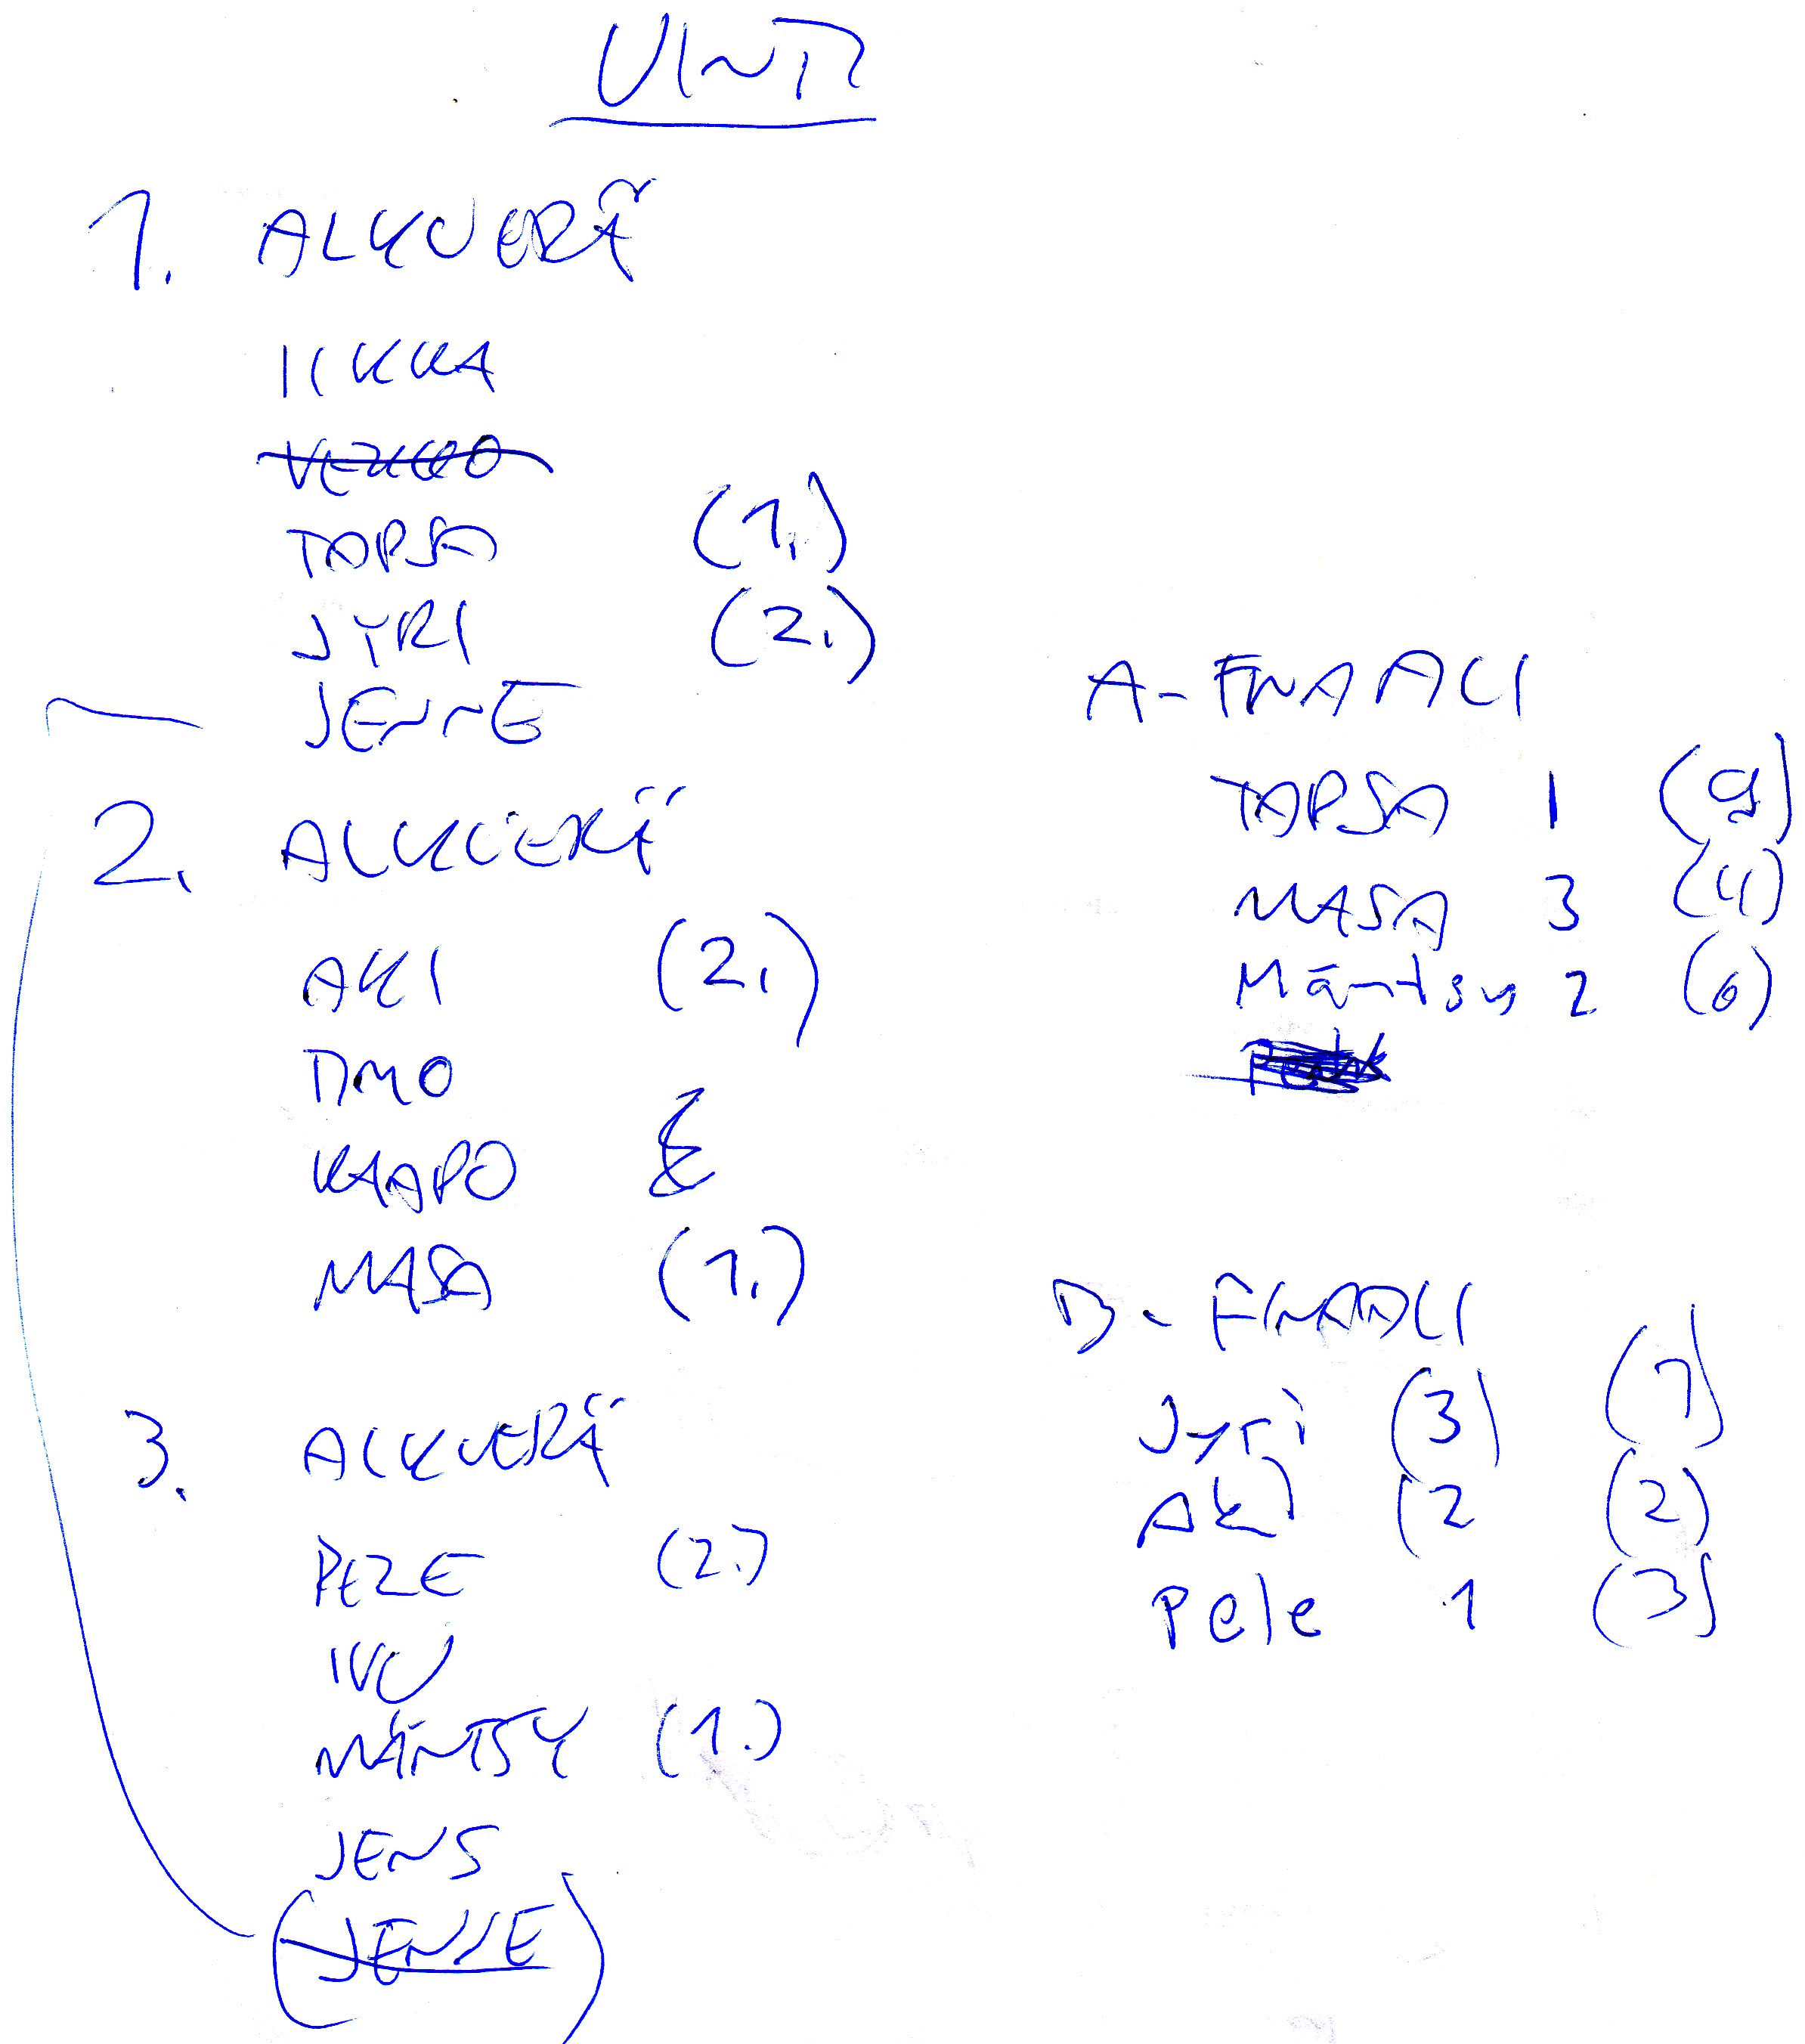 UINTI
1. ALKUERÄ
IIKKA
TAPSA (1.)
JYRI (2.)
JENNE
2. ALKUERÄ
AKI (2.)
TIMO
KAAPO
MASA (1.)
3. ALKUERÄ
PEZE (2.)
IVU
MÄNTSY (1.)
JENS
(JENNE)
A-FINAALI
TAPSA 1 (9)
MASA 3 (4)
Mäntsy 2 (6)
B-FINAALI
Jyri (3) (1)
Aki (2 (2)
Pele 1 (3)